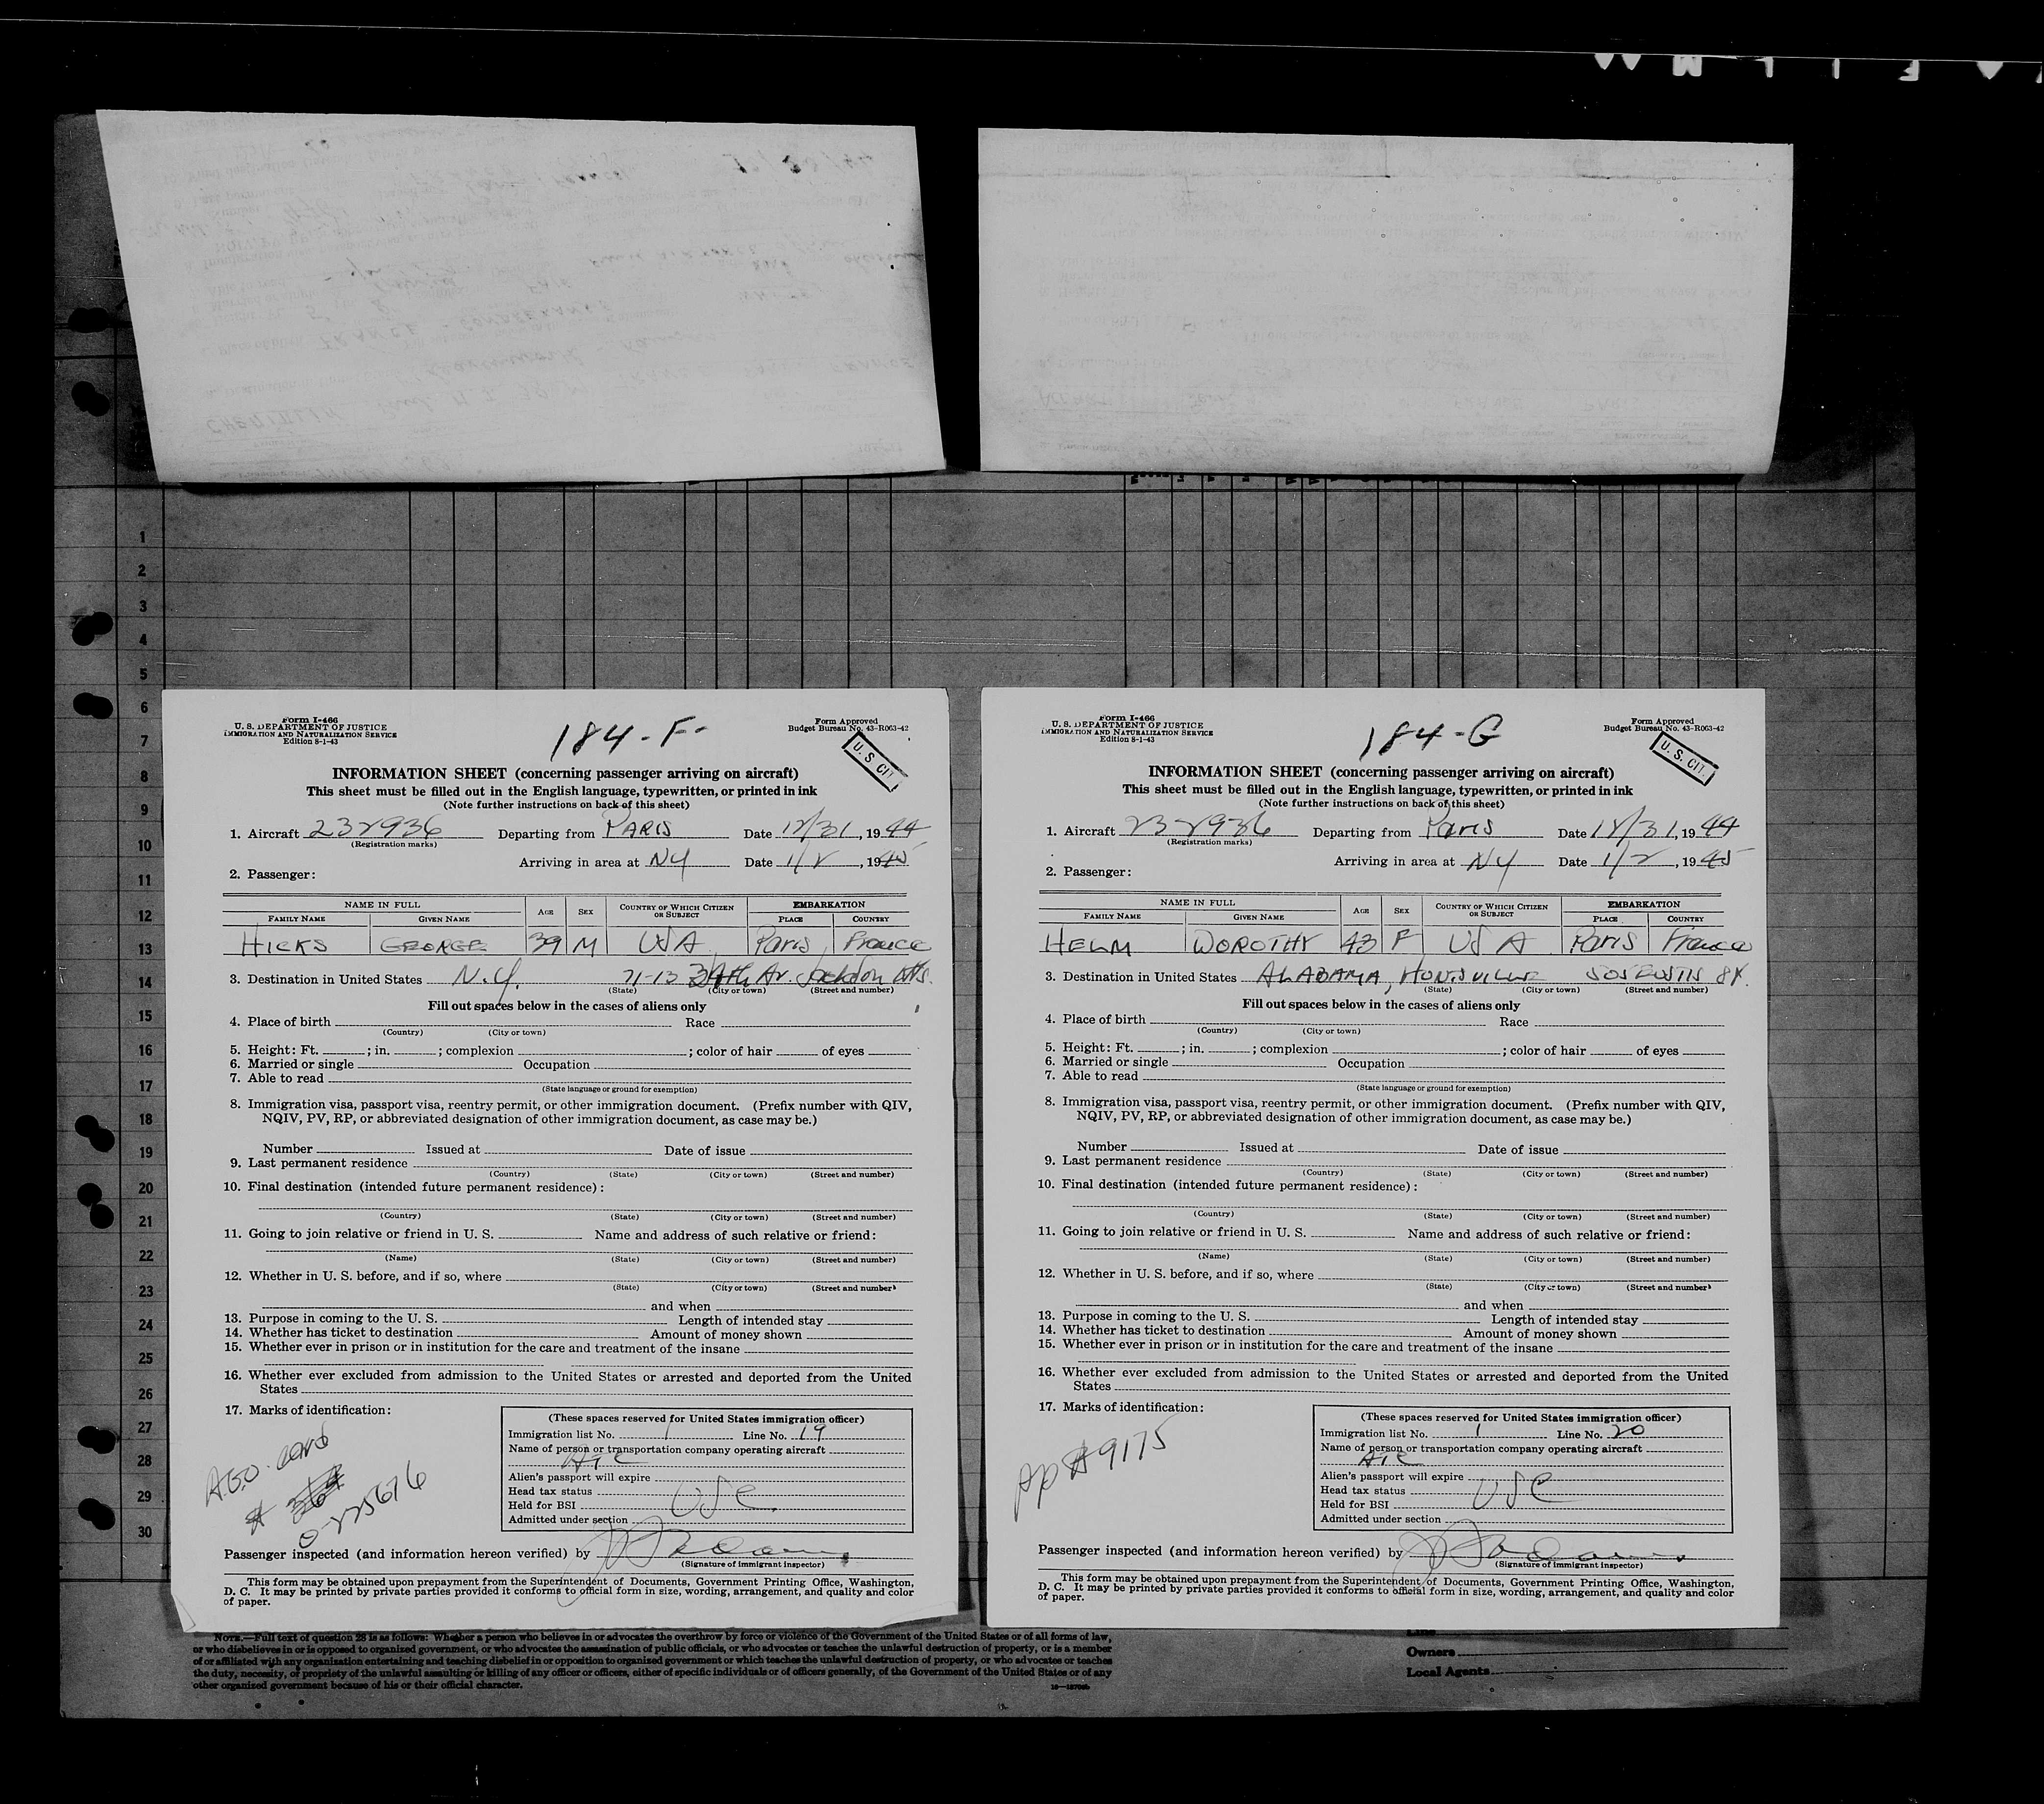 FILM
1
2
3
4
5
6
7
8
9
10
11
12
13
14
15
16
17
18
19
20
21
22
23
24
25
26
27
28
29
30
Form I-466
U. S. DEPARTMENT OF JUSTICE
IMMIGRATION AND NATURALIZATION SERVICE
Edition 8-1-43
184-F-
Form Approved
Budget Bureau No. 43-R063-42
U. S. CIT.
INFORMATION SHEET (concerning passenger arriving on aircraft)
This sheet must be filled out in the English language, typewritten, or printed in ink
(Note further instructions on back of this sheet)
1. Aircraft 232936 Departing from PARIS Date 12/31, 1944
(Registration marks)
Arriving in area at NY Date 1/2, 1945
2. Passenger:
NAME IN FULL AGE SEX COUNTRY OF WHICH CITIZEN OR SUBJECT EMBARKATION
FAMILY NAME GIVEN NAME PLACE COUNTRY
HICKS GEORGE 39 M USA Paris France
3. Destination in United States N.Y. 71-13 34th Av. Jackson Hts.
(State) (City or town) (Street and number)
Fill out spaces below in the cases of aliens only
4. Place of birth Race
(Country) (City or town)
5. Height: Ft. ; in. ; complexion ; color of hair of eyes
6. Married or single Occupation
7. Able to read
(State language or ground for exemption)
8. Immigration visa, passport visa, reentry permit, or other immigration document. (Prefix number with QIV,
NQIV, PV, RP, or abbreviated designation of other immigration document, as case may be.)
Number Issued at Date of issue
9. Last permanent residence
(Country) (State) (City or town) (Street and number)
10. Final destination (intended future permanent residence):
(Country) (State) (City or town) (Street and number)
11. Going to join relative or friend in U. S. Name and address of such relative or friend:
(Name) (State) (City or town) (Street and number)
12. Whether in U. S. before, and if so, where
(State) (City or town) (Street and number)
and when
13. Purpose in coming to the U. S. Length of intended stay
14. Whether has ticket to destination Amount of money shown
15. Whether ever in prison or in institution for the care and treatment of the insane
16. Whether ever excluded from admission to the United States or arrested and deported from the United
States
17. Marks of identification:
A.G.O. card
#
0-225676
(These spaces reserved for United States immigration officer)
Immigration list No. 1 Line No. 19
Name of person or transportation company operating aircraft
ATC
Alien's passport will expire
Head tax status USC
Held for BSI
Admitted under section
Passenger inspected (and information hereon verified) by
(Signature of immigrant inspector)
This form may be obtained upon prepayment from the Superintendent of Documents, Government Printing Office, Washington,
D. C. It may be printed by private parties provided it conforms to official form in size, wording, arrangement, and quality and color
of paper.
Form I-466
U. S. DEPARTMENT OF JUSTICE
IMMIGRATION AND NATURALIZATION SERVICE
Edition 8-1-43
184-G
Form Approved
Budget Bureau No. 43-R063-42
U. S. CIT.
INFORMATION SHEET (concerning passenger arriving on aircraft)
This sheet must be filled out in the English language, typewritten, or printed in ink
(Note further instructions on back of this sheet)
1. Aircraft 232936 Departing from Paris Date 12/31, 1944
(Registration marks)
Arriving in area at NY Date 1/2, 1945
2. Passenger:
NAME IN FULL AGE SEX COUNTRY OF WHICH CITIZEN OR SUBJECT EMBARKATION
FAMILY NAME GIVEN NAME PLACE COUNTRY
HELM DOROTHY 43 F USA Paris France
3. Destination in United States ALABAMA, HUNTSVILLE 505 EUSTIS St.
(State) (City or town) (Street and number)
Fill out spaces below in the cases of aliens only
4. Place of birth Race
(Country) (City or town)
5. Height: Ft. ; in. ; complexion ; color of hair of eyes
6. Married or single Occupation
7. Able to read
(State language or ground for exemption)
8. Immigration visa, passport visa, reentry permit, or other immigration document. (Prefix number with QIV,
NQIV, PV, RP, or abbreviated designation of other immigration document, as case may be.)
Number Issued at Date of issue
9. Last permanent residence
(Country) (State) (City or town) (Street and number)
10. Final destination (intended future permanent residence):
(Country) (State) (City or town) (Street and number)
11. Going to join relative or friend in U. S. Name and address of such relative or friend:
(Name) (State) (City or town) (Street and number)
12. Whether in U. S. before, and if so, where
(State) (City or town) (Street and number)
and when
13. Purpose in coming to the U. S. Length of intended stay
14. Whether has ticket to destination Amount of money shown
15. Whether ever in prison or in institution for the care and treatment of the insane
16. Whether ever excluded from admission to the United States or arrested and deported from the United
States
17. Marks of identification:
PP #9175
(These spaces reserved for United States immigration officer)
Immigration list No. 1 Line No. 20
Name of person or transportation company operating aircraft
ATC
Alien's passport will expire
Head tax status USC
Held for BSI
Admitted under section
Passenger inspected (and information hereon verified) by
(Signature of immigrant inspector)
This form may be obtained upon prepayment from the Superintendent of Documents, Government Printing Office, Washington,
D. C. It may be printed by private parties provided it conforms to official form in size, wording, arrangement, and quality and color
of paper.
NOTE.—Full text of question 28 is as follows: Whether a person who believes in or advocates the overthrow by force or violence of the Government of the United States or of all forms of law,
or who disbelieves in or is opposed to organized government, or who advocates the assassination of public officials, or who advocates or teaches the unlawful destruction of property, or is a member
of or affiliated with any organization entertaining and teaching disbelief in or opposition to organized government or which teaches the unlawful destruction of property, or who advocates or teaches
the duty, necessity, or propriety of the unlawful assaulting or killing of any officer or officers, either of specific individuals or of officers generally, of the Government of the United States or of any
other organized government because of his or their official character.
Line
Owners
Local Agents